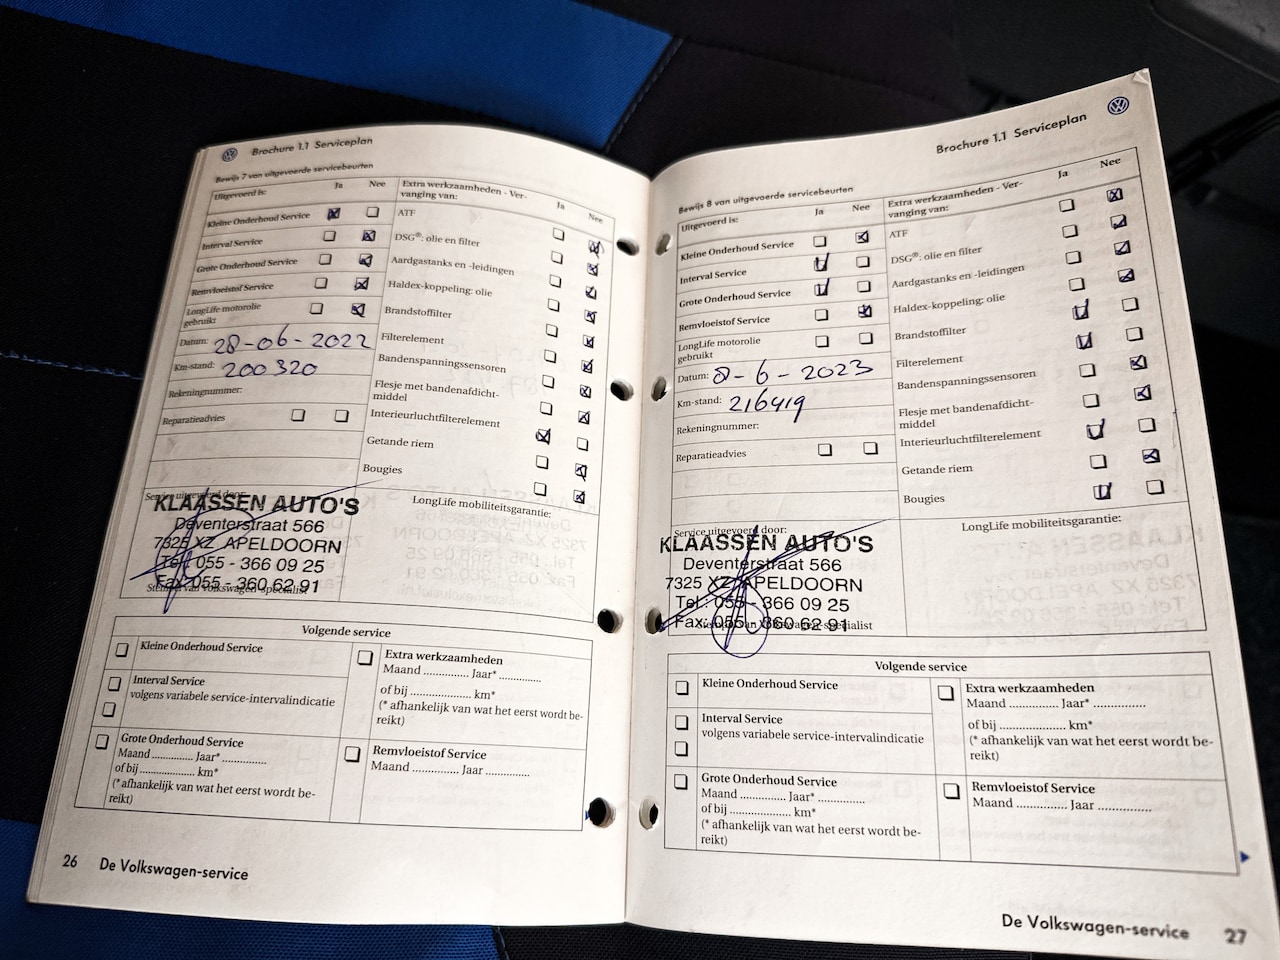 Brochure 1.1 Serviceplan
Bewijs 7 van uitgevoerde servicebeurten
Uitgevoerd is: Ja Nee
Kleine Onderhoud Service
Interval Service
Grote Onderhoud Service
Remvloeistof Service
LongLife motorolie
gebruikt
Datum: 28-06-2022
Km-stand: 200320
Rekeningnummer:
Reparatieadvies
Extra werkzaamheden - Ver-
vanging van: Ja Nee
ATF
DSG®: olie en filter
Aardgastanks en -leidingen
Haldex-koppeling: olie
Brandstoffilter
Filterelement
Bandenspanningssensoren
Flesje met bandenafdicht-
middel
Interieurluchtfilterelement
Getande riem
Bougies
Service uitgevoerd door:
KLAASSEN AUTO'S
Deventerstraat 566
7325 XZ APELDOORN
Tel.: 055 - 366 09 25
Fax: 055 - 360 62 91
Stempel van Volkswagen-specialist
LongLife mobiliteitsgarantie:
Volgende service
Kleine Onderhoud Service
Interval Service
volgens variabele service-intervalindicatie
Grote Onderhoud Service
Maand .............. Jaar* ...............
of bij .................. km*
(* afhankelijk van wat het eerst wordt be-
reikt)
Extra werkzaamheden
Maand .............. Jaar* ..............
of bij .................... km*
(* afhankelijk van wat het eerst wordt be-
reikt)
Remvloeistof Service
Maand .............. Jaar ...............
26 De Volkswagen-service
Brochure 1.1 Serviceplan
Bewijs 8 van uitgevoerde servicebeurten
Uitgevoerd is: Ja Nee
Kleine Onderhoud Service
Interval Service
Grote Onderhoud Service
Remvloeistof Service
LongLife motorolie
gebruikt
Datum: 8-6-2023
Km-stand: 216419
Rekeningnummer:
Reparatieadvies
Extra werkzaamheden - Ver-
vanging van: Ja Nee
ATF
DSG®: olie en filter
Aardgastanks en -leidingen
Haldex-koppeling: olie
Brandstoffilter
Filterelement
Bandenspanningssensoren
Flesje met bandenafdicht-
middel
Interieurluchtfilterelement
Getande riem
Bougies
Service uitgevoerd door:
KLAASSEN AUTO'S
Deventerstraat 566
7325 XZ APELDOORN
Tel.: 055 - 366 09 25
Fax: 055 - 360 62 91
Stempel van Volkswagen-specialist
LongLife mobiliteitsgarantie:
Volgende service
Kleine Onderhoud Service
Interval Service
volgens variabele service-intervalindicatie
Grote Onderhoud Service
Maand .............. Jaar* ...............
of bij .................... km*
(* afhankelijk van wat het eerst wordt be-
reikt)
Extra werkzaamheden
Maand ............... Jaar* ................
of bij ...................... km*
(* afhankelijk van wat het eerst wordt be-
reikt)
Remvloeistof Service
Maand ............... Jaar ................
De Volkswagen-service 27